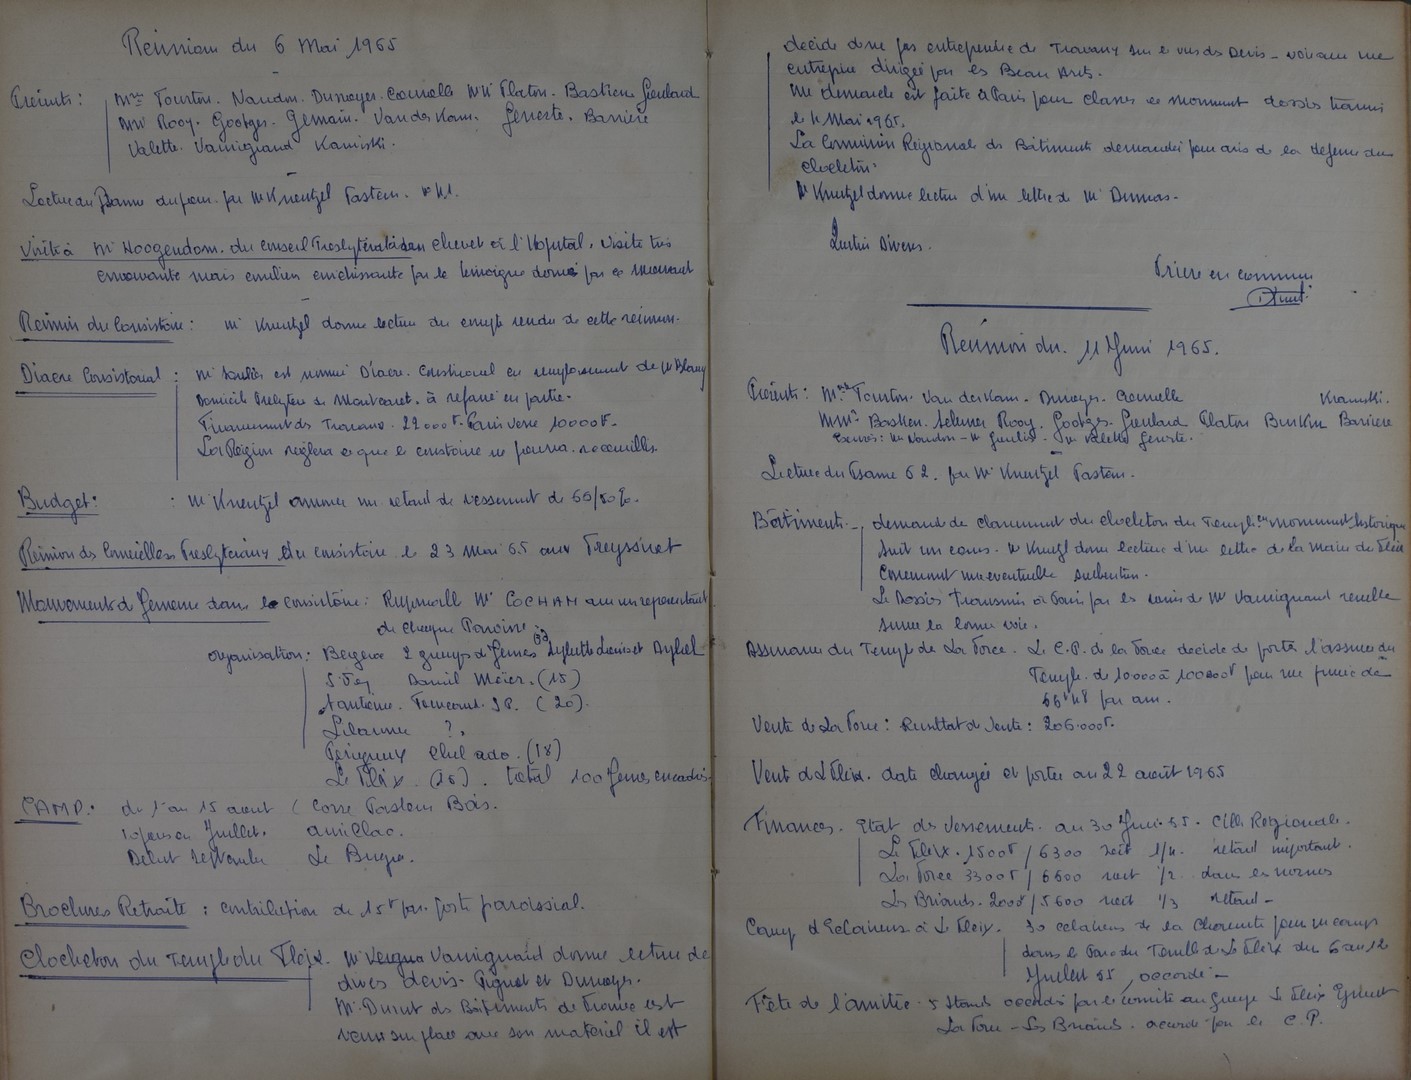 Réunion du 6 Mai 1965
Présents : Mmes Tourton. Naudon. Dumoyer. Cornelle MM Platon. Bastien Goulard
MM Rooy. Gootges. Germain. Van der Kam. Geneste. Barrière
Valette. Vauvignaud Kaminski.
Lecture du Psaume du jour. par Mr Kneutzel Pasteur.
Visite à Mr Hoogendom. du conseil Presbytéral à son chevet à l'Hopital, visite très
émouvante mais combien enrichissante par le témoignage donné par ce mourant
Réunion du Consistoire : Mr Kneutzel donne lecture du compte rendu de cette réunion.
Diacre Consistorial : Mr Souliès est nommé Diacre. Consistorial en remplacement de Mr Blamy
Domicile Presbytère de Montcaret. à refaire en partie.
Financement des Travaux. 22000F. Paris verse 10000F.
La Région règlera ce que le consistoire ne pourra. recueillir.
Budget : : Mr Kneutzel annonce un retard de versement de 65/50%.
Réunion des Conseillers Presbytéraux du consistoire le 23 Mai 65 aux Freyssinet
Mouvement de Jeunesse dans le consistoire : Responsable Mr COCHAM avec un représentant
de chaque Paroisse.
Organisation : Bergerac 2 groupes de jeunes
Daniel Meier. (15)
Nanteuil. J.P. (20).
?.
Périgueux Club ado. (18)
Le Fleix (16). total 100 Jeunes encadrés.
CAMP : du 1 au 15 aout ( Corse Pasteur Bas.
10 jours en Juillet. aurillac.
Début septembre Le Bugue.
Brochures Retraite : contribution de 15F par. poste paroissial.
Clocheton du Temple du Fleix. Mr Vauvignaud donne lecture de
divers devis. Pignot et Dumoyer.
Mr Durut des Bâtiments de France est
venu sur place avec son matériel il est
décidé de ne pas entreprendre de Travaux sur le vu des Devis - voir avec une
entreprise dirigée par les Beaux Arts.
Une demande est faite à Paris pour classer ce monument dossier transmis
le 11 Mai 1965.
La Commission Régionale des Bâtiments demandée pour avis de la défense du
clocheton.
Mr Kneutzel donne lecture d'une lettre de Mr Dumas.
Question Diverses.
Prière en commun
Réunion du. 11 Juin 1965.
Présents : Mmes Tourton. Van der Kam. Dumoyer. Cornelle Kaminski.
MMrs Bastien. Rooy. Gootges. Goulard Platon Barrière
Excusés : Mme Naudon - Mr Mr Valette Geneste.
Lecture du Psaume 62. par Mr Kneutzel Pasteur.
Bâtiments - demande de classement du clocheton du Temple en monument historique
suit un cours. Mr Kneutzel donne lecture d'une lettre de la Mairie du Fleix
concernant une éventuelle subvention.
Le Dossier transmis à Paris par les soins de Mr Vauvignaud semble
suivre la bonne voie.
Assurance du Temple de La Force. Le C.P. de la Force décide de porter l'assurance du
Temple. de 10000 à 100000F pour une prime de
66F48 par an.
Vente de La Force : Résultat de Vente : 206.000F.
Vente du Fleix. date changée et portée au 22 août 1965
Finances. Etat des Versements. au 30 Juin 65. Cible Régionale.
Le Fleix. 1500F / 6300 soit 1/4. retard important.
La Force 3300F / 6600 soit 1/2. dans les normes
Les Briands. 2000F / 5600 soit 1/3 retard -
Camp d'Eclaireurs à Le Fleix. 30 éclaireurs de la Charente pour un camps
dans le Parc du Temple de Le Fleix du 6 au 12
Juillet 65 / accordé -
Fête de l'amitié. 5 Stands accordés par le comité au groupe Le Fleix
La Force - Les Briands. accordé par le C.P.